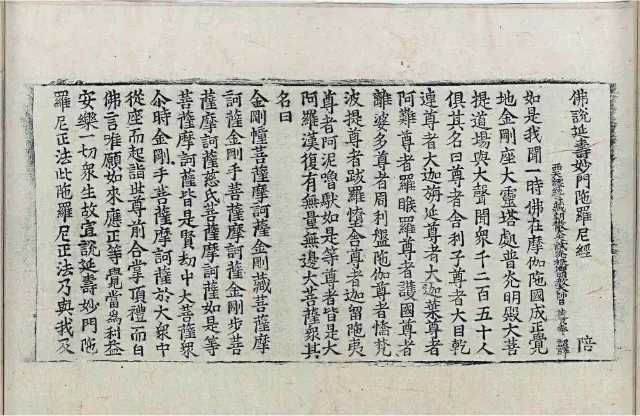 佛說延壽妙門陁羅尼經
陪
如是我聞一時佛在摩伽陁國成正覺
地金剛座大靈塔處普光明殿大菩
提道場與大聲聞衆千二百五十人
俱其名曰尊者舍利子尊者大目乾
連尊者大迦旃延尊者大迦葉尊者
阿難尊者羅睺羅尊者護國尊者
離婆多尊者周利盤陁伽尊者憍梵
波提尊者跋羅憜舍尊者迦留陁夷
尊者阿泥嚕䭾如是等尊者皆是大
阿羅漢復有無量無邊大菩薩衆其
名曰
金剛幢菩薩摩訶薩金剛藏菩薩摩
訶薩金剛手菩薩摩訶薩金剛步菩
薩摩訶薩慈氏菩薩摩訶薩如是等
菩薩摩訶薩皆是賢劫中大菩薩衆
尒時金剛手菩薩摩訶薩於大衆中
從座而起詣世尊前合掌頂禮而白
佛言唯願如來應正等覺當爲利益
安樂一切衆生故宣說延壽妙門陁
羅尼正法此陁羅尼正法乃與我及